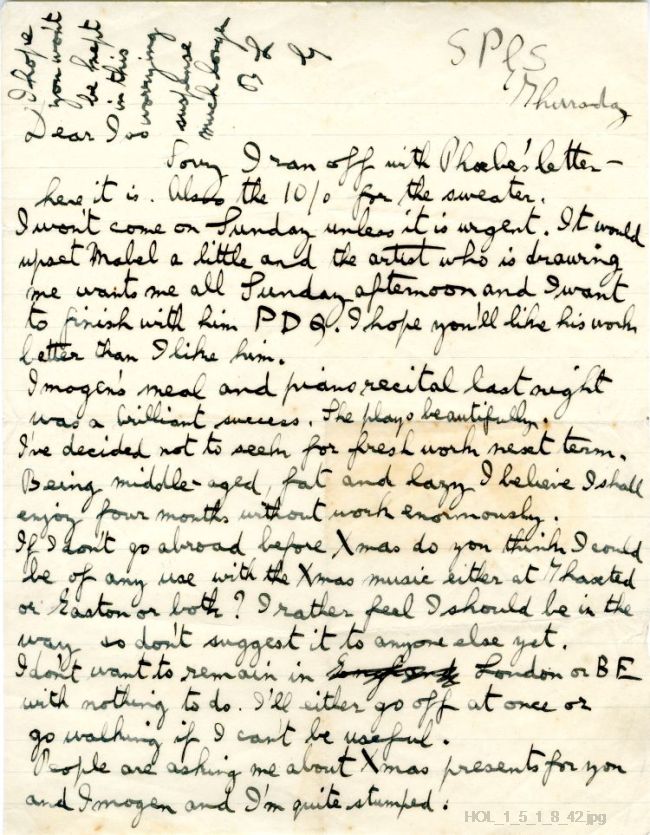 SPGS
Thursday
Dear Iso
Sorry I ran off with Phoebe's letter –
here it is. Also the 10/0 for the sweater.
I won't come on Sunday unless it is urgent. It would
upset Mabel a little and the artist who is drawing
me wants me all Sunday afternoon and I want
to finish with him PDQ. I hope you'll like his work
better than I like him.
Imogen's meal and piano recital last night
was a brilliant success. She plays beautifully.
I've decided not to seek for fresh work next term.
Being middle-aged, fat and lazy I believe I shall
enjoy four months without work enormously.
If I don't go abroad before Xmas do you think I could
be of any use with the Xmas music either at Thaxted
or Easton or both? I rather feel I should be in the
way so don't suggest it to anyone else yet.
I don't want to remain in London or BE
with nothing to do. I'll either go off at once or
go walking if I can't be useful.
People are asking me about Xmas presents for you
and Imogen and I'm quite stumped.
I hope
you won't
be kept
in this
worrying
suspense
much longer
HOL_1_5_1_8_42.jpg